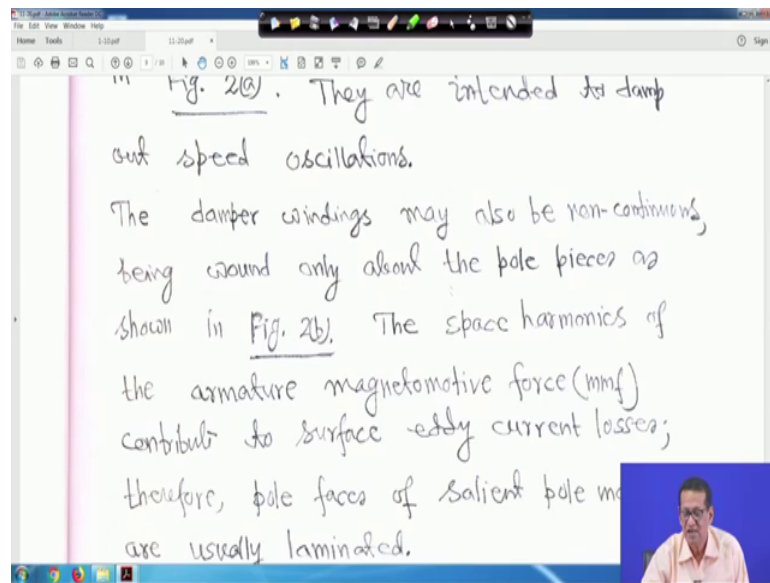 11-20.pdf - Adobe Acrobat Reader DC
File Edit View Window Help
Home Tools 1-10.pdf 11-20.pdf × Sign
in Fig. 2(a). They are intended to damp
out speed oscillations.
The damper windings may also be non-continuous,
being wound only about the pole pieces as
shown in Fig. 2(b). The space harmonics of
the armature magnetomotive force (mmf)
contribute to surface eddy current losses;
therefore, pole faces of salient pole
are usually laminated.